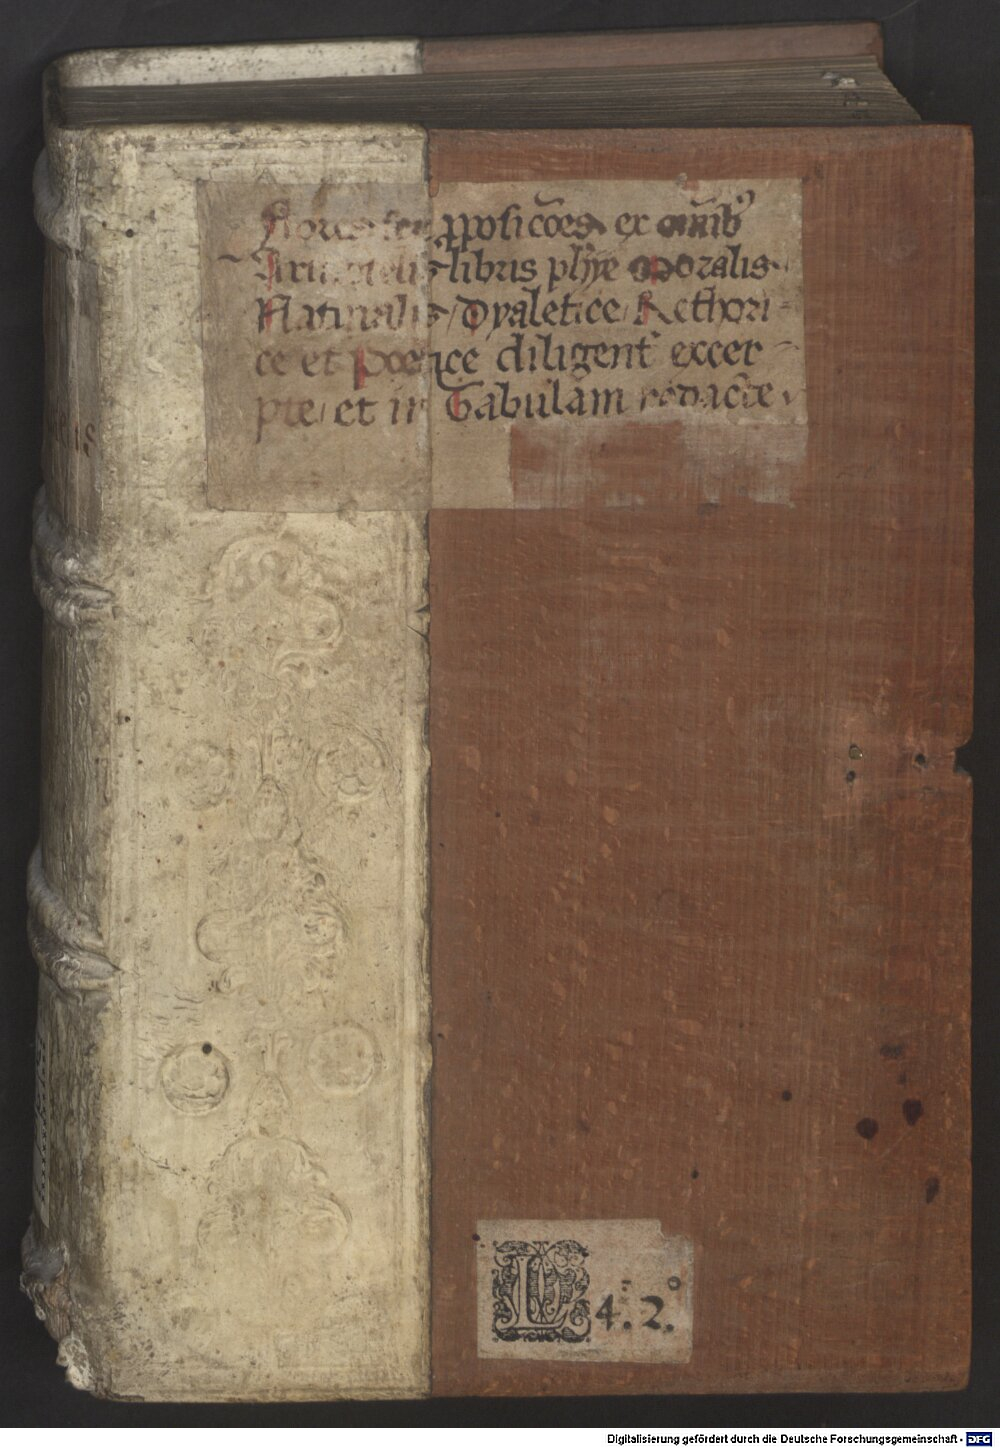 Flores seu ꝓposicões ex om̃ibꝰ
Aristotelis libris ph̃ye Moralis
Naturalis / Dyaletice / Rethori-
ce et Poetice diligent̃ excer-
pte / et in Tabulam redacte
L 4.° 2.°
Digitalisierung gefördert durch die Deutsche Forschungsgemeinschaft - DFG